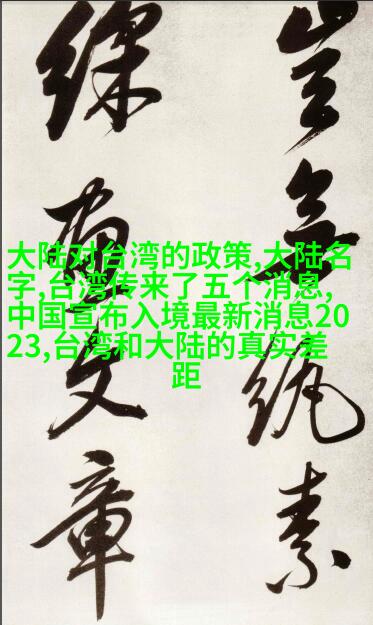 豈無紈素
綵畫文章
大陆对台湾的政策,大陆名
字,台湾传来了五个消息,
中国宣布入境最新消息20
23,台湾和大陆的真实差
距